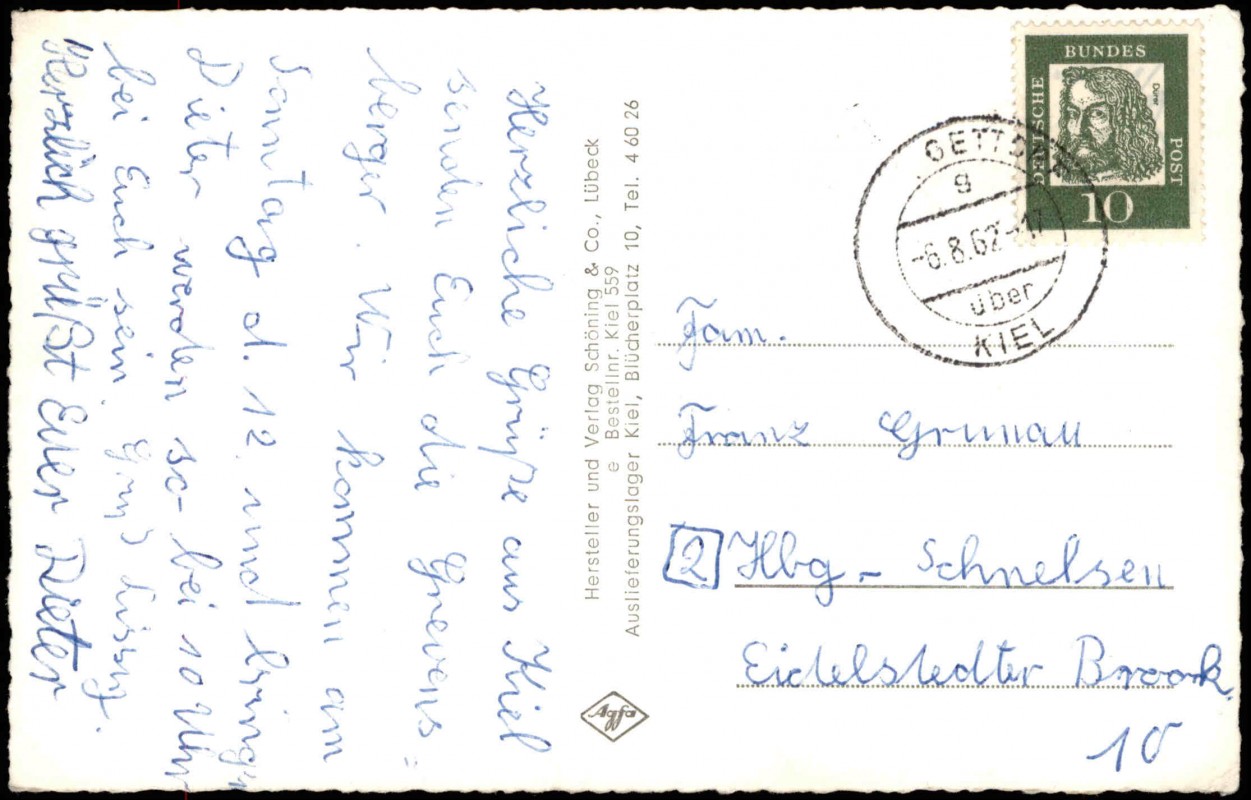 Herzliche Grüße aus Kiel
senden Euch die Grevens=
berger. Wir kommen am
Sonntag d. 12 und bringen
Dieter werden so bei 10 Uhr
bei Euch sein. Gruß
Herzlich grüßt Euer Dieter
Hersteller und Verlag Schöning & Co., Lübeck
e Bestellnr. Kiel 559
Auslieferungslager Kiel, Blücherplatz 10, Tel. 4 60 26
Agfa
DEUTSCHE
BUNDES
POST
Dürer
10
GETTORF
g
-6.8.62-17
über
KIEL
Fam.
Franz Grunau
2 Hbg - Schnelsen
Eidelstedter Brook
10